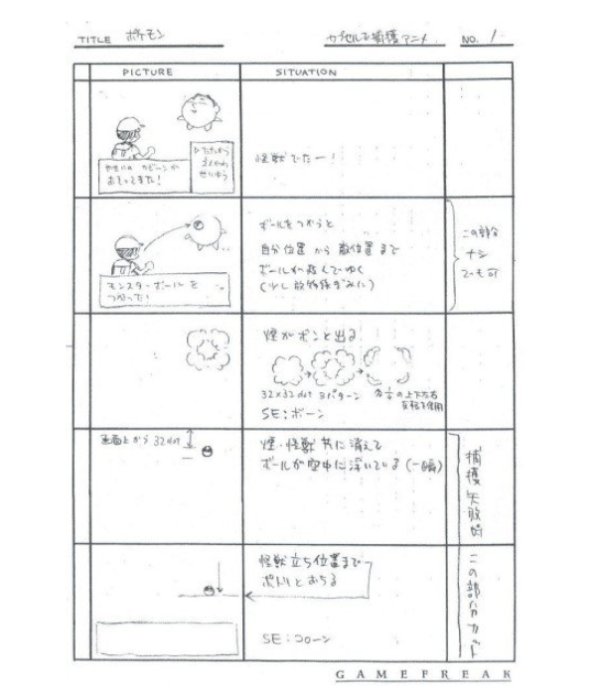 TITLE ポケモン
カプセルで捕獲アニメ.
NO. 1
PICTURE
SITUATION
やせいの カビーンが
おそってきた!
怪獣でたー!
モンスターボールを
つかった!
ボールをつかうと
自分位置から敵位置まで
ボールが飛んでゆく
(少し放物線ぎみに)
この部分
ナシ
でも可
煙がボンと出る
32x32dot 3パターン
上下左右
反転を使用
SE:ボーン
画面上から 32dot
煙・怪獣 共に消えて
ボールが空中に浮いている(一瞬)
捕獲失敗時
この部分カット
怪獣立ち位置まで
ポトルとおちる
SE:コローン
GAMEFREAK